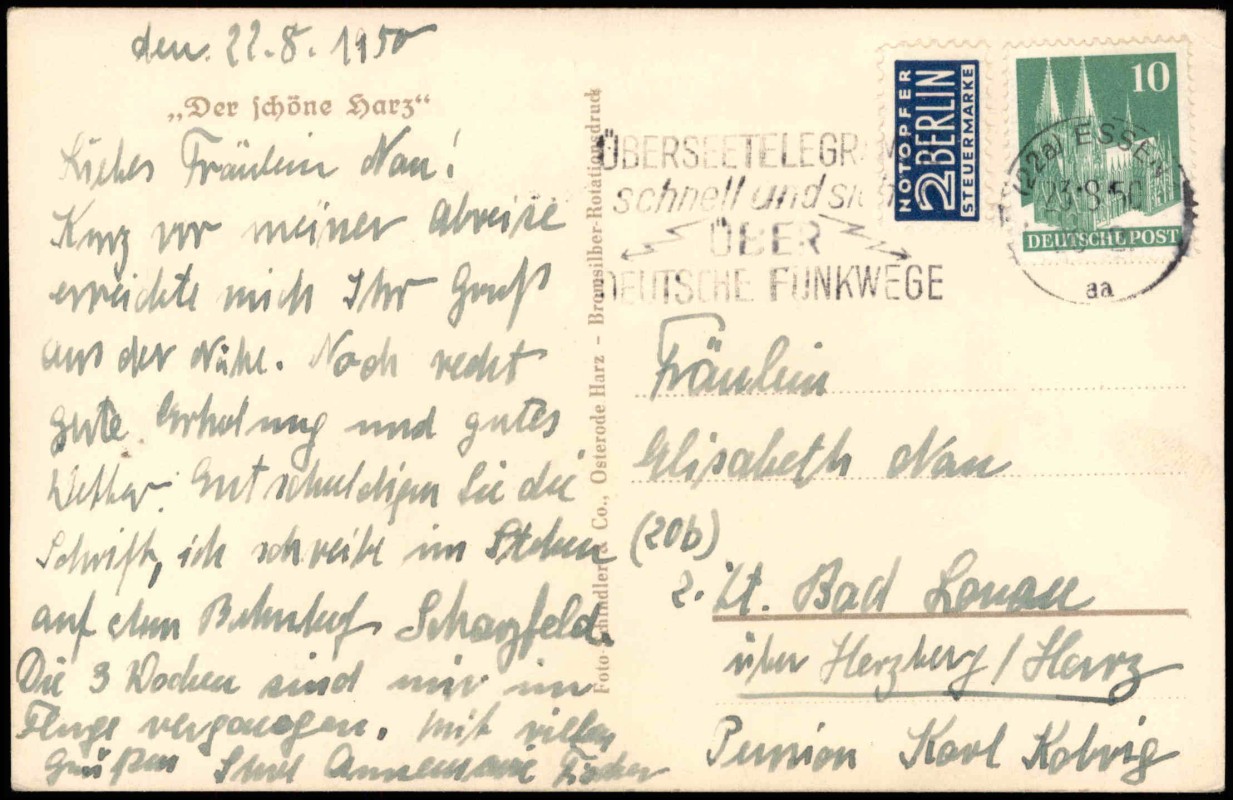 den. 22.8.1950
„Der schöne Harz“
Liebes Fräulein Nau!
Kurz vor meiner Abreise
erreichte mich Ihr Gruß
aus der Nähe. Noch recht
gute Erholung und gutes
Wetter. Entschuldigen Sie die
Schrift, ich schreibe im Stehen
auf dem Bahnhof Scharzfeld.
Die 3 Wochen sind mir im
Fluge vergangen. Mit vielen
Grüßen Ihre Annemarie
Foto-Schindler & Co., Osterode Harz – Bromsilber-Rotationsdruck
ÜBERSEETELEGRAM
schnell und sich
ÜBER
DEUTSCHE FUNKWEGE
NOTOPFER
2 BERLIN
STEUERMARKE
10
DEUTSCHE POST
(22a) ESSEN
23.8.50
aa
Fräulein
Elisabeth Nau
(20b)
z. Zt. Bad Lonau
über Herzberg/Harz
Pension Karl Kolwig